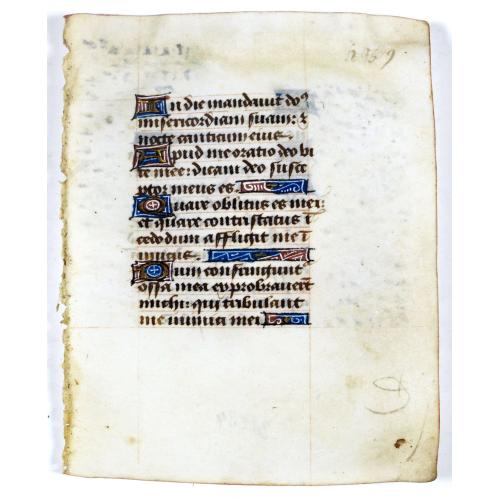 In die mandavit do⁹
misericordiam suam: ⁊
nocte canticum eius.
Apud me oratio deo vi
te mee: dicam deo susce
ptor meus es.
Quare oblitus es mei:
et quare contristatus ī
cedo dum affligit me ī
micus.
Dum confringunt̄
ossa mea exprobraver̄t
michi: qui tribulant
me inimici mei.